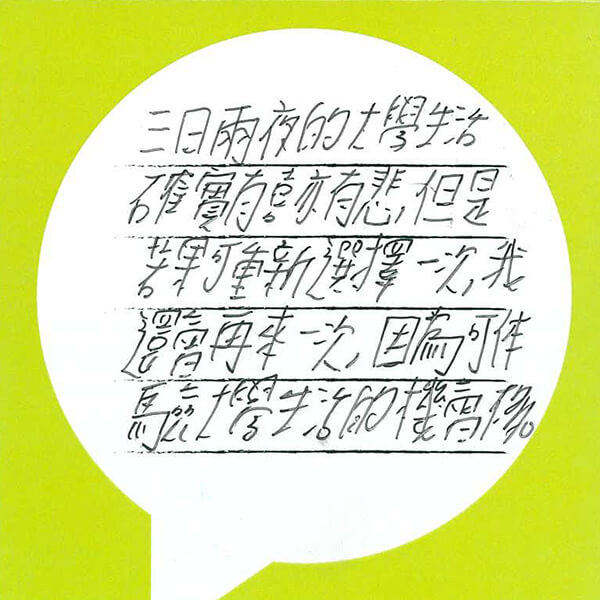 三日兩夜的大學生活
確實有喜亦有悲,但是
若果可重新選擇一次,我
還會再來一次,因為可体
驗大學生活的機會